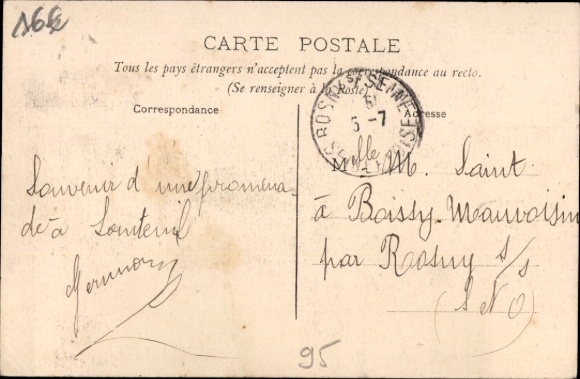 CARTE POSTALE
Tous les pays étrangers n'acceptent pas la correspondance au recto.
(Se renseigner à la Poste)
Correspondance
Adresse
ROSNY S/ SEINE
5 -7
S. & OISE
Souvenir d'une promena-
de à
Melle M. Saint
à Boissy-Mauvoisin
par Rosny s/s
(S N O)
95